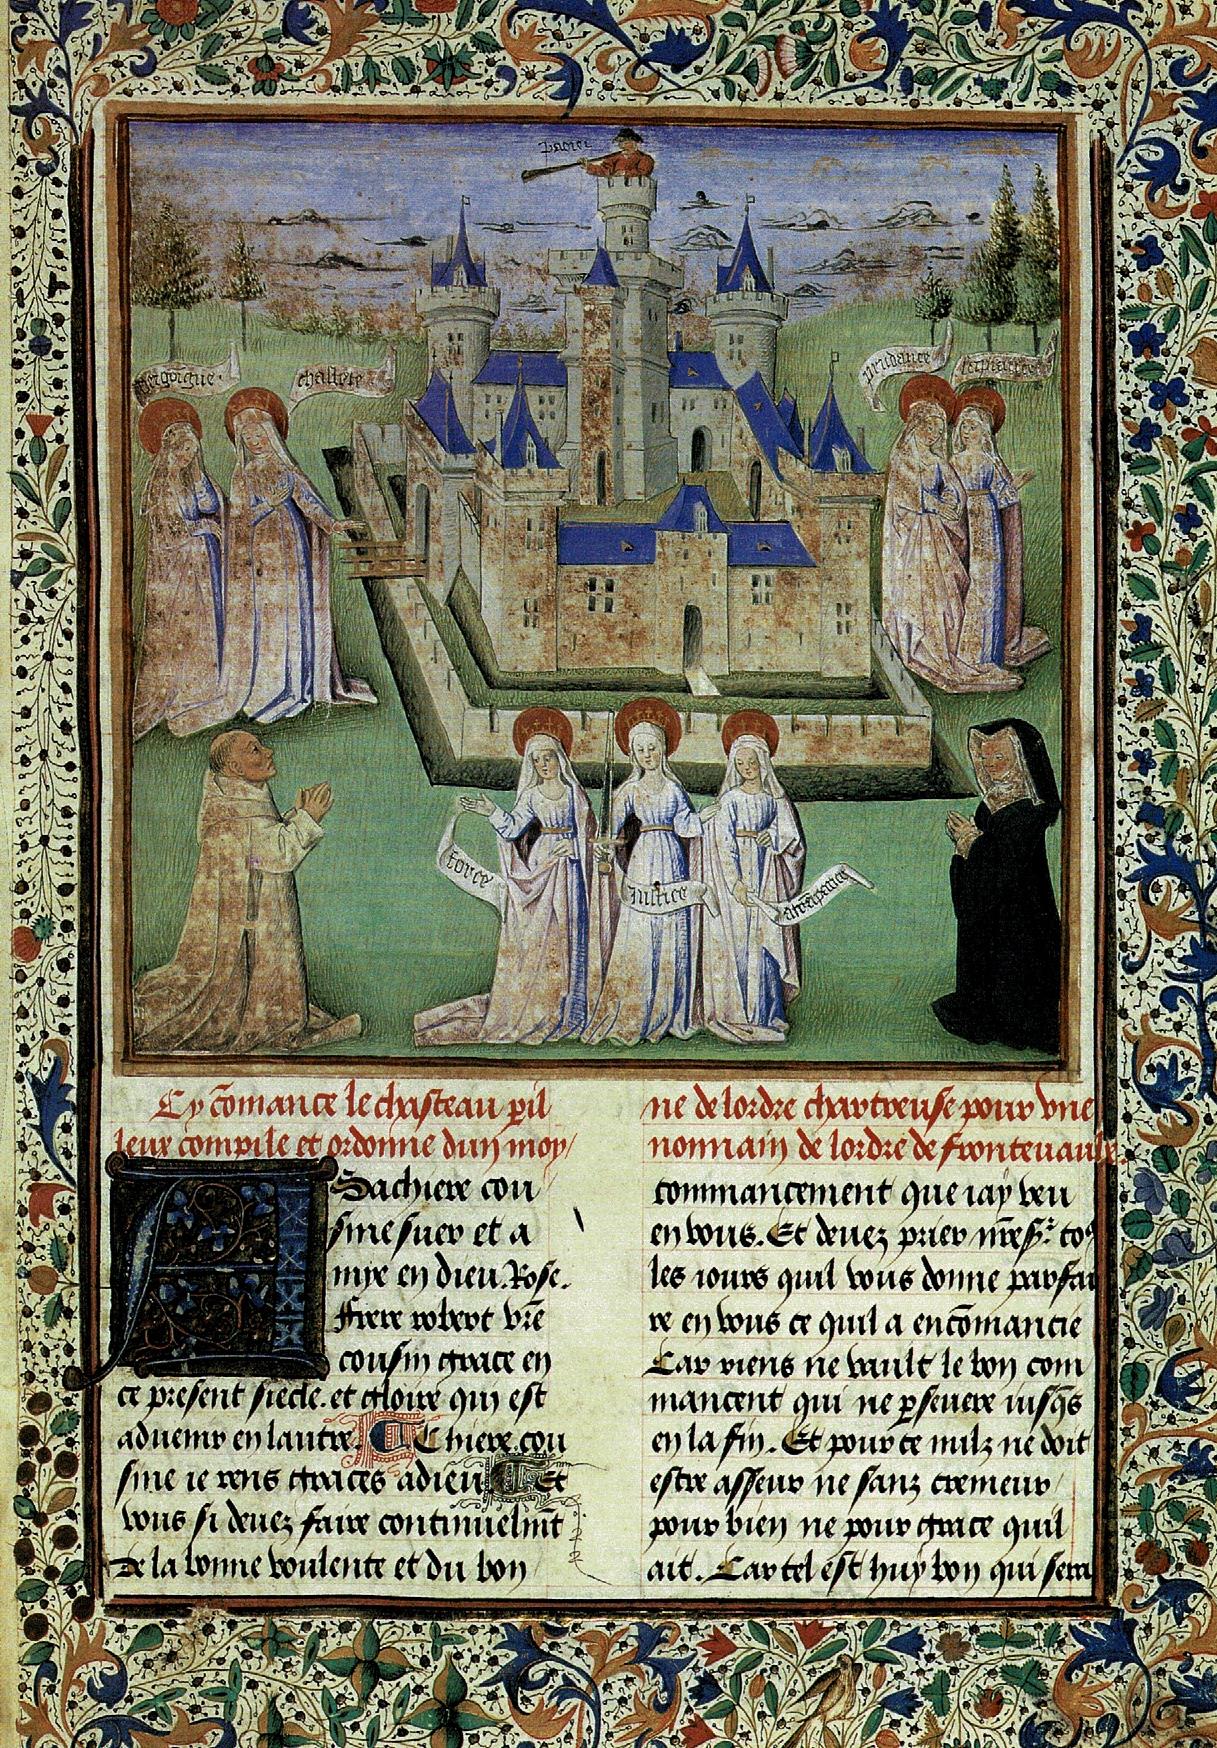 vergoigne
chastete
prudance
force
Justice
atrempance
Cy com̃ance le chasteau ꝑil
leux compile et ordonne dun moy
ne de lordre chartreuse pour vne
nonnain de lordre de fronteuaulx
A Sa chiere cou
sine suer et a
mye en dieu. Rose.
Frere robert vr̃e
cousin grace en
ce present siecle. et gloire qui est
aduenir en lautre. Chiere cou
sine ie rens graces adieu Et
vous si deuez faire continuelmt̃
De la bonne voulente et du bon
commancement que iay veu
en vous. Et deuez prier nr̃e sʳ. to⁹
les iours quil vous donne parfai
re en vous ce quil a encom̃ancie
Car riens ne vault le bon com
mancent qui ne ꝑseuere iusq̃s
en la fin. Et pour ce milz ne doit
estre asseur ne sanz cremeur
pour bien ne pour grace quil
ait. Car tel est huy bon qui sera